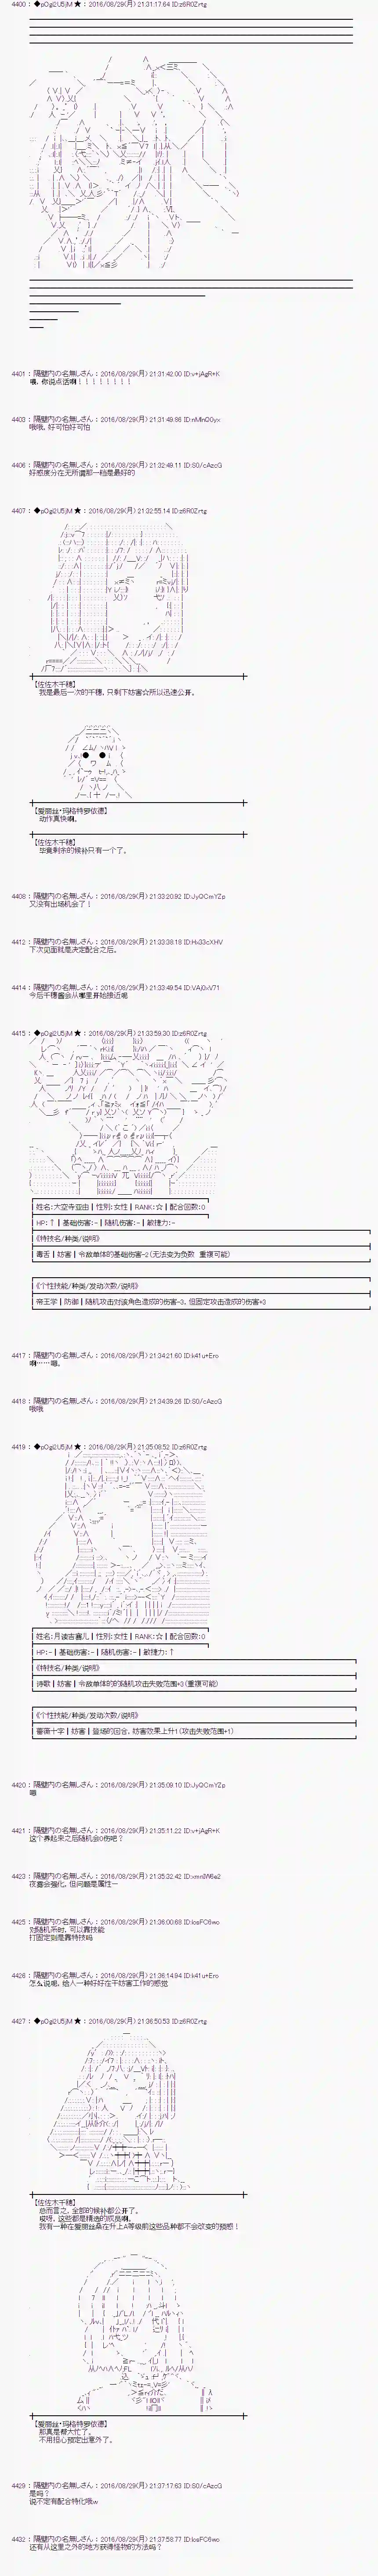 4400 : ◆pOgi2U5jM ★ : 2016/08/29(月) 21:31:17.64 ID:z6R0Zrtg
4401 : 隔壁内の名無しさん : 2016/08/29(月) 21:31:42.00 ID:v+jAgR+K
哦，你说点话啊！！！！！！！！
4403 : 隔壁内の名無しさん : 2016/08/29(月) 21:31:49.86 ID:nMlnQ0yx
哦哦，好可怕好可怕
4406 : 隔壁内の名無しさん : 2016/08/29(月) 21:32:49.11 ID:S0/cAzcG
好感度分在无所谓那一档是最好的
4407 : ◆pOgi2U5jM ★ : 2016/08/29(月) 21:32:55.14 ID:z6R0Zrtg
【佐佐木千穗】
我是最后一次的千穗，只剩下妨害☆所以迅速公开。
【爱丽丝·玛格特罗依德】
动作真快啊。
【佐佐木千穗】
毕竟剩余的候补只有一个了。
4408 : 隔壁内の名無しさん : 2016/08/29(月) 21:33:20.92 ID:JyQCmYZp
又没有出场机会了！
4412 : 隔壁内の名無しさん : 2016/08/29(月) 21:33:38.18 ID:Hx33cXHV
下次见面就是决定配合之后。
4414 : 隔壁内の名無しさん : 2016/08/29(月) 21:33:49.54 ID:VAj0xV71
今后千穗酱会从哪里开始接近呢
4415 : ◆pOgi2U5jM ★ : 2016/08/29(月) 21:33:59.30 ID:z6R0Zrtg
姓名:大空寺亚由┃性别:女性┃RANK:☆┃配合回数:0
HP:↑┃基础伤害:-┃随机伤害:-┃敏捷力:-
《特技名/种类/说明》
毒舌┃妨害┃令敌单体的基础伤害-2(无法变为负数　重复可能)
《个性技能/种类/发动次数/说明》
帝王学┃防御┃随机攻击对该角色造成的伤害-3，但固定攻击造成的伤害+3
4417 : 隔壁内の名無しさん : 2016/08/29(月) 21:34:21.60 ID:k41u+Ero
啊……嗯。
4418 : 隔壁内の名無しさん : 2016/08/29(月) 21:34:39.26 ID:S0/cAzcG
哦哦
4419 : ◆pOgi2U5jM ★ : 2016/08/29(月) 21:35:08.52 ID:z6R0Zrtg
姓名:月读吉塞儿┃性别:女性┃RANK:☆┃配合回数:0
HP:-┃基础伤害:-┃随机伤害:-┃敏捷力:↑
《特技名/种类/说明》
诗歌┃妨害┃令敌单体的的随机攻击失败范围+3(重复可能)
《个性技能/种类/发动次数/说明》
蔷薇十字┃妨害┃登场的回合，妨害效果上升1(攻击失败范围+1)
4420 : 隔壁内の名無しさん : 2016/08/29(月) 21:35:09.10 ID:JyQCmYZp
嗯
4421 : 隔壁内の名無しさん : 2016/08/29(月) 21:35:11.22 ID:v+jAgR+K
这个养起来之后随机会0伤吧？
4423 : 隔壁内の名無しさん : 2016/08/29(月) 21:35:32.42 ID:xmnIW6a2
夜露会强化，但问题是属性－
4425 : 隔壁内の名無しさん : 2016/08/29(月) 21:36:00.68 ID:losFC6wo
对随机系时，可以靠技能
打固定则是靠特技吗
4426 : 隔壁内の名無しさん : 2016/08/29(月) 21:36:14.94 ID:k41u+Ero
怎么说呢，给人一种好好在干妨害工作的感觉
4427 : ◆pOgi2U5jM ★ : 2016/08/29(月) 21:36:50.53 ID:z6R0Zrtg
【佐佐木千穗】
总而言之，全部的候补都公开了。
哎呀，这些都是精选的成员啊。
我有一种在爱丽丝桑在升上A等级前这些品种都不会改变的预感！
【爱丽丝·玛格特罗依德】
那真是帮大忙了。
不用担心预定出意外了。
4429 : 隔壁内の名無しさん : 2016/08/29(月) 21:37:17.63 ID:S0/cAzcG
是吗？
说不定有配合特化哦w
4432 : 隔壁内の名無しさん : 2016/08/29(月) 21:37:58.77 ID:losFC6wo
还有从这里之外的地方获得怪物的方法吗？